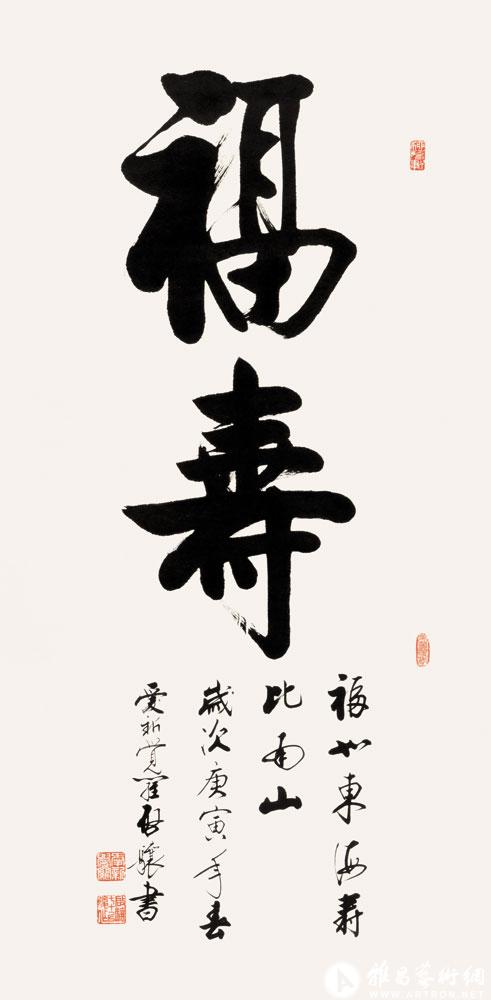 福壽
福如東海壽
比南山
歲次庚寅年春
愛新覺羅啟驤書
雅昌藝術網
WWW.ARTRON.NET